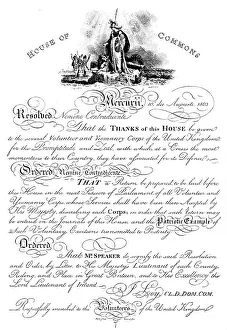 HOUSE OF COMMONS
Mercurii, 10° die Augusti, 1803
Resolved, Nemine Contradicente,
That the THANKS of this HOUSE be given
to the several Volunteer and Yeomanry Corps of the United Kingdom
for the Promptitude and Zeal with which, at a Crisis the most
momentous to their Country, they have associated for its Defence.
Ordered, Nemine Contradicente,
THAT a Return be prepared to be laid before
this House in the next Session of Parliament of all Volunteer and
Yeomanry Corps whose Services shall have been then Accepted by
His Majesty, describing each Corps, in order that such Return may
be entered on the Journals of this House and the Patriotic Example
of such Voluntary Exertions transmitted to Posterity.
Ordered,
That Mr. SPEAKER do signify the said Resolution
and Order, by Letter, to His Majesty's Lieutenant of each County,
Riding, and Place in Great Britain, and to His Excellency the
Lord Lieutenant of Ireland.
J. Ley Cl. D. Dom. Com.
Respectfully inscribed to the Volunteers of the United Kingdom